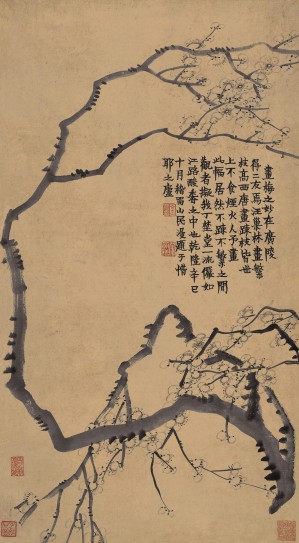 畫梅之妙在廣陵
得二友焉汪巢林畫繁
枝高西唐畫踈枝皆世
上不食煙火人予畫
此幅居然不踈不繁之間
觀者擬我丁野堂一流儼如
江路酸香之中也乾隆辛巳
十月稽留山民漫題于惜
耶之廬